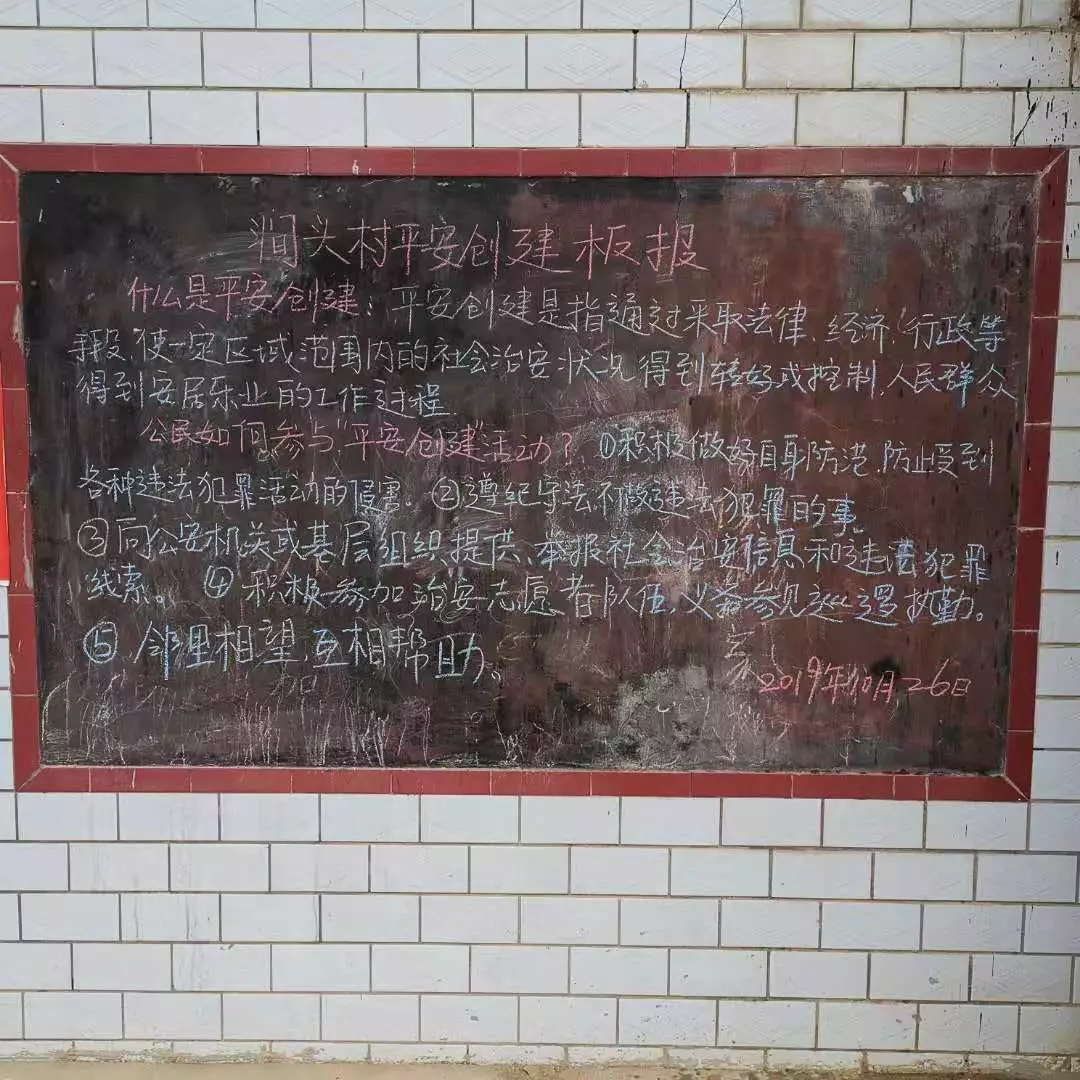 涧头村平安创建板报
什么是平安创建:平安创建是指通过采取法律、经济、行政等
手段,使一定区域范围内的社会治安状况得到转好或控制,人民群众
得到安居乐业的工作过程
公民如何参与“平安创建”活动? ①积极做好自身防范,防止受到
各种违法犯罪活动的侵害。②遵纪守法不做违法犯罪的事。
③向公安机关或基层组织提供、举报社会治安信息和违法犯罪
线索。 ④积极参加治安志愿者队伍,义务参见巡逻执勤。
⑤、邻里相望,互相帮助。
2019年10月26日